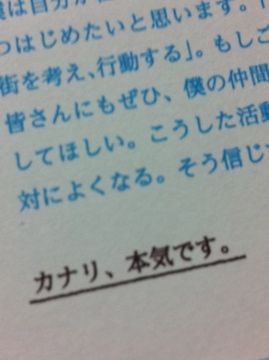 僕は自分が
つはじめたいと思います。「
街を考え、行動する」。もしご
皆さんにもぜひ、僕の仲間
してほしい。こうした活動
対によくなる。そう信じ
カナリ、本気です。